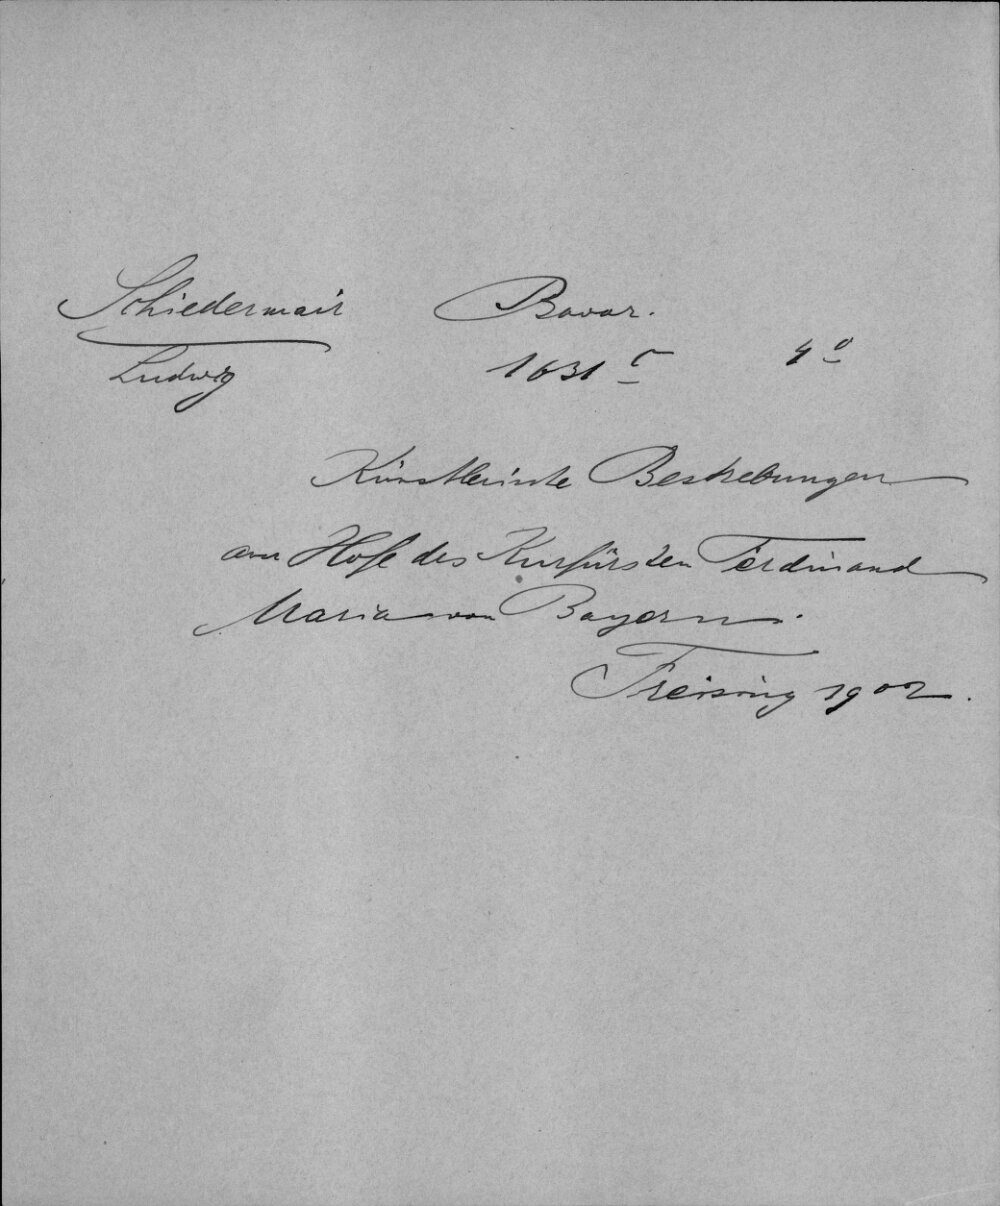 Schiedermair Bavar.
Ludwig 1631 r 4°
Künstlerische Bestrebungen
am Hofe des Kurfürsten Ferdinand
Maria von Bayern.
Freising 1902.